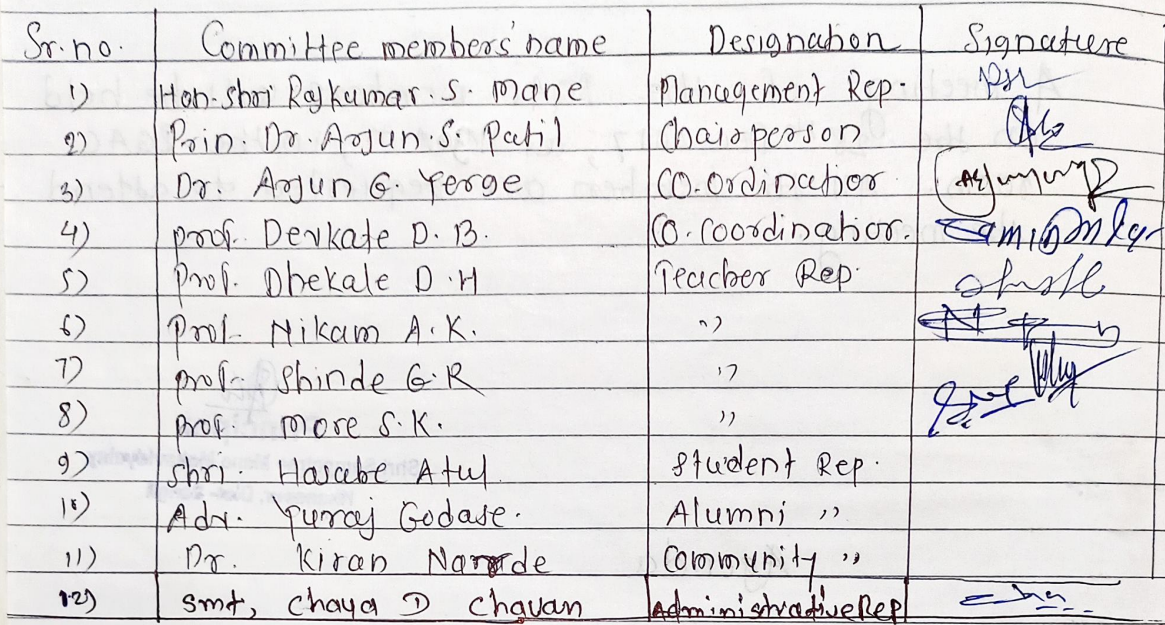 Sr. no. Committee members' name Designation Signature
1) Hon. Shri Rajkumar S. Mane Management Rep
2) Prin. Dr Arjun S. Patil Chairperson
3) Dr. Arjun G Yerge CO. Ordinator
4) Prof. Devkate D. B. CO. Coordinatior.
5) Prof. Dhekale D. H Teacher Rep.
6) Prof. Nikam A. K. ,,
7) Prof. Shinde G. R ,,
8) Prof. More S. K. ,,
9) Shri Hasabe Atul Student Rep.
10) Adv. Yuraj Godase. Alumni ,,
11) Dr. Kiran Community ,,
12) Smt, Chaya D Chavan Administrative Rep